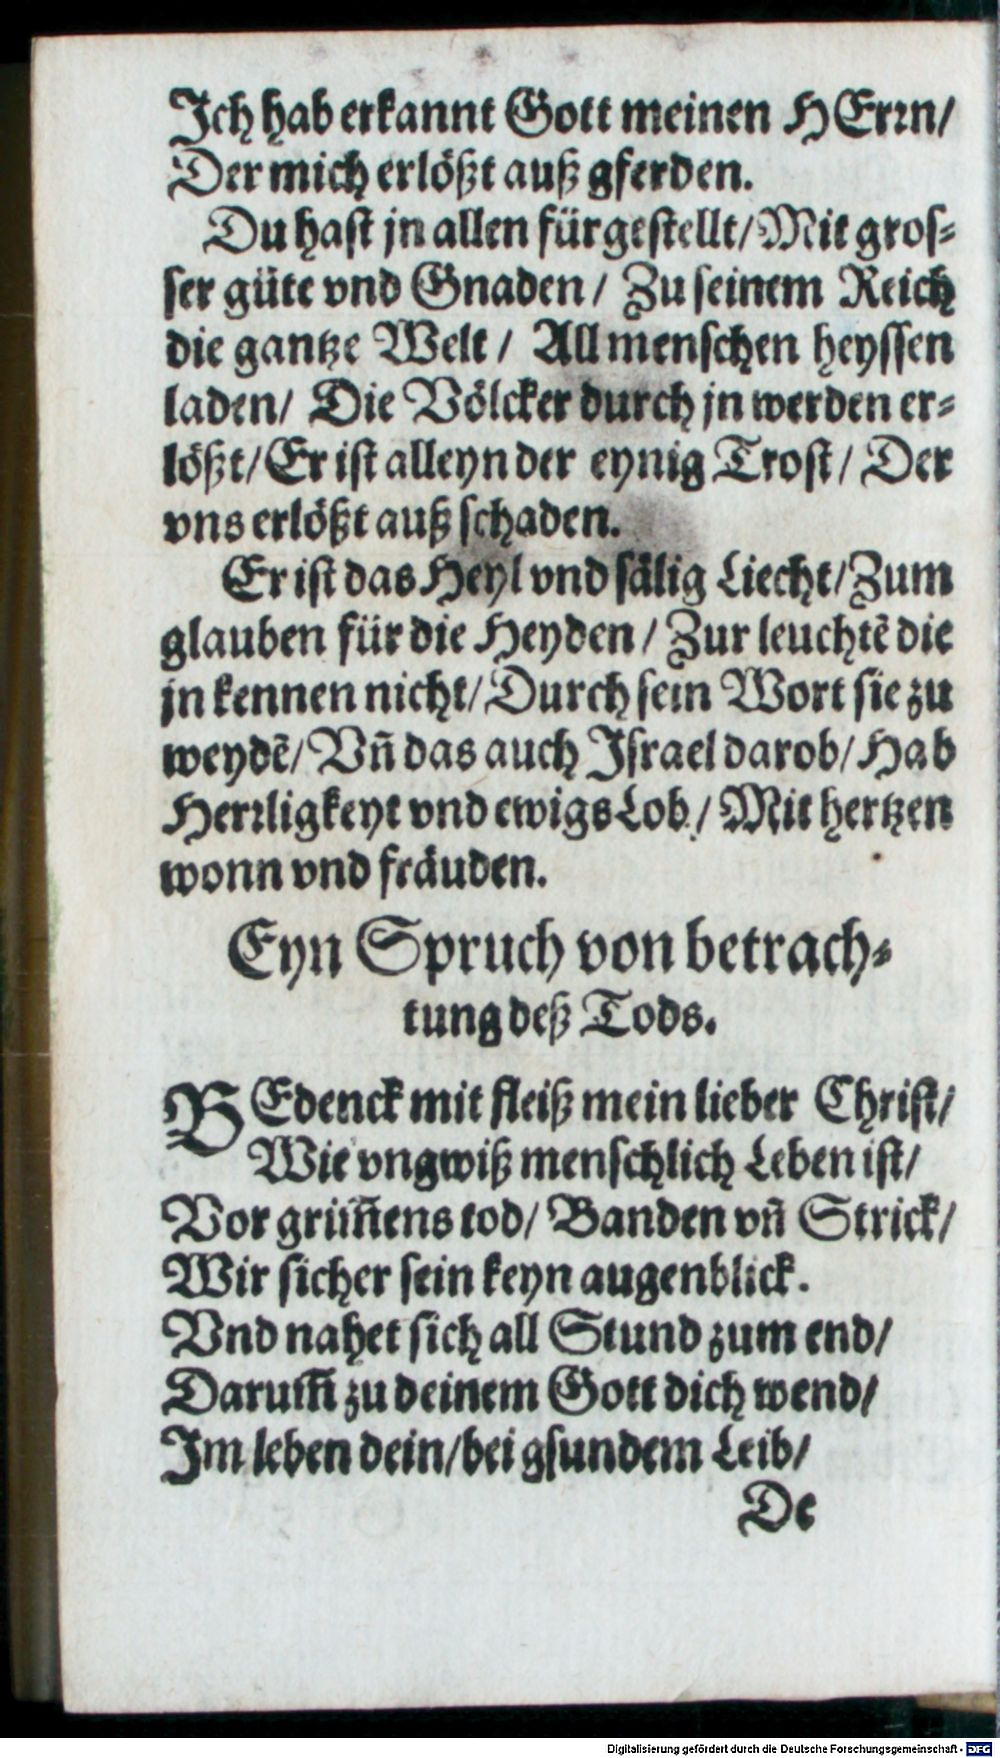 Ich hab erkannt Gott meinen HErrn/
Der mich erlößt auß gferden.
Du hast jn allen fürgestellt/Mit gros-
ser güte vnd Gnaden/ Zu seinem Reich
die gantze Welt/ All menschen heyssen
laden/ Die Völcker durch jn werden er-
lößt/Er ist alleyn der eynig Trost/ Der
vns erlößt auß schaden.
Er ist das Heyl vnd sälig Liecht/Zum
glauben für die Heyden/ Zur leuchtẽ die
jn kennen nicht/Durch sein Wort sie zu
weydẽ/Vñ das auch Israel darob/Hab
Herrligkeyt vnd ewigs Lob/Mit hertzen
wonn vnd fräuden.
Eyn Spruch von betrach-
tung deß Tods.
BEdenck mit fleiß mein lieber Christ/
Wie vngwiß menschlich Leben ist/
Vor grim̃ens tod/ Banden vñ Strick/
Wir sicher sein keyn augenblick.
Vnd nahet sich all Stund zum end/
Darum̃ zu deinem Gott dich wend/
Im leben dein/bei gsundem Leib/
De
Digitalisierung gefördert durch die Deutsche Forschungsgemeinschaft - DFG